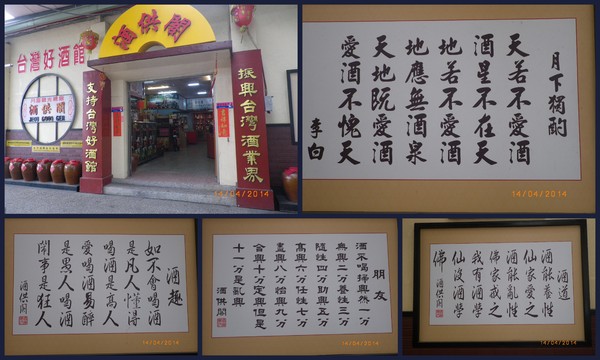 酒供閣
台灣好酒館
酒供閣
JEOU GONG GER
支持台灣好酒館
振興台灣酒業界
14/04/2014
月下獨酌
天若不愛酒
酒星不在天
地若不愛酒
地應無酒泉
天地既愛酒
愛酒不愧天
李白
14/04/2014
酒趣
如不會喝酒
是凡人懂得
喝酒是高人
愛喝酒易醉
是愚人喝酒
鬧事是狂人
酒供閣
14/04/2014
朋友
酒不喝掃興然一分
興二分養性三分
隨性四分助興五分
高興六分任性七分
盡興八分興九分
會興十分定興但是
十一分是亂興
酒供閣
14/04/2014
酒道
酒能養性
仙家愛之
酒能亂性
佛家戒之
我有酒學
仙沒酒學
佛
酒供閣
14/04/2014